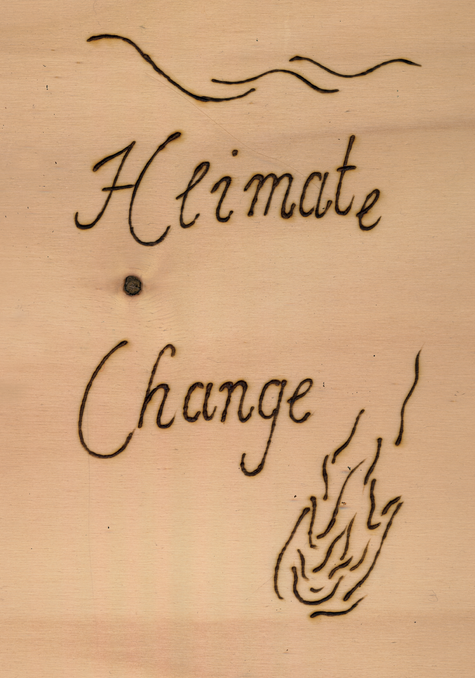 Heimate
Change